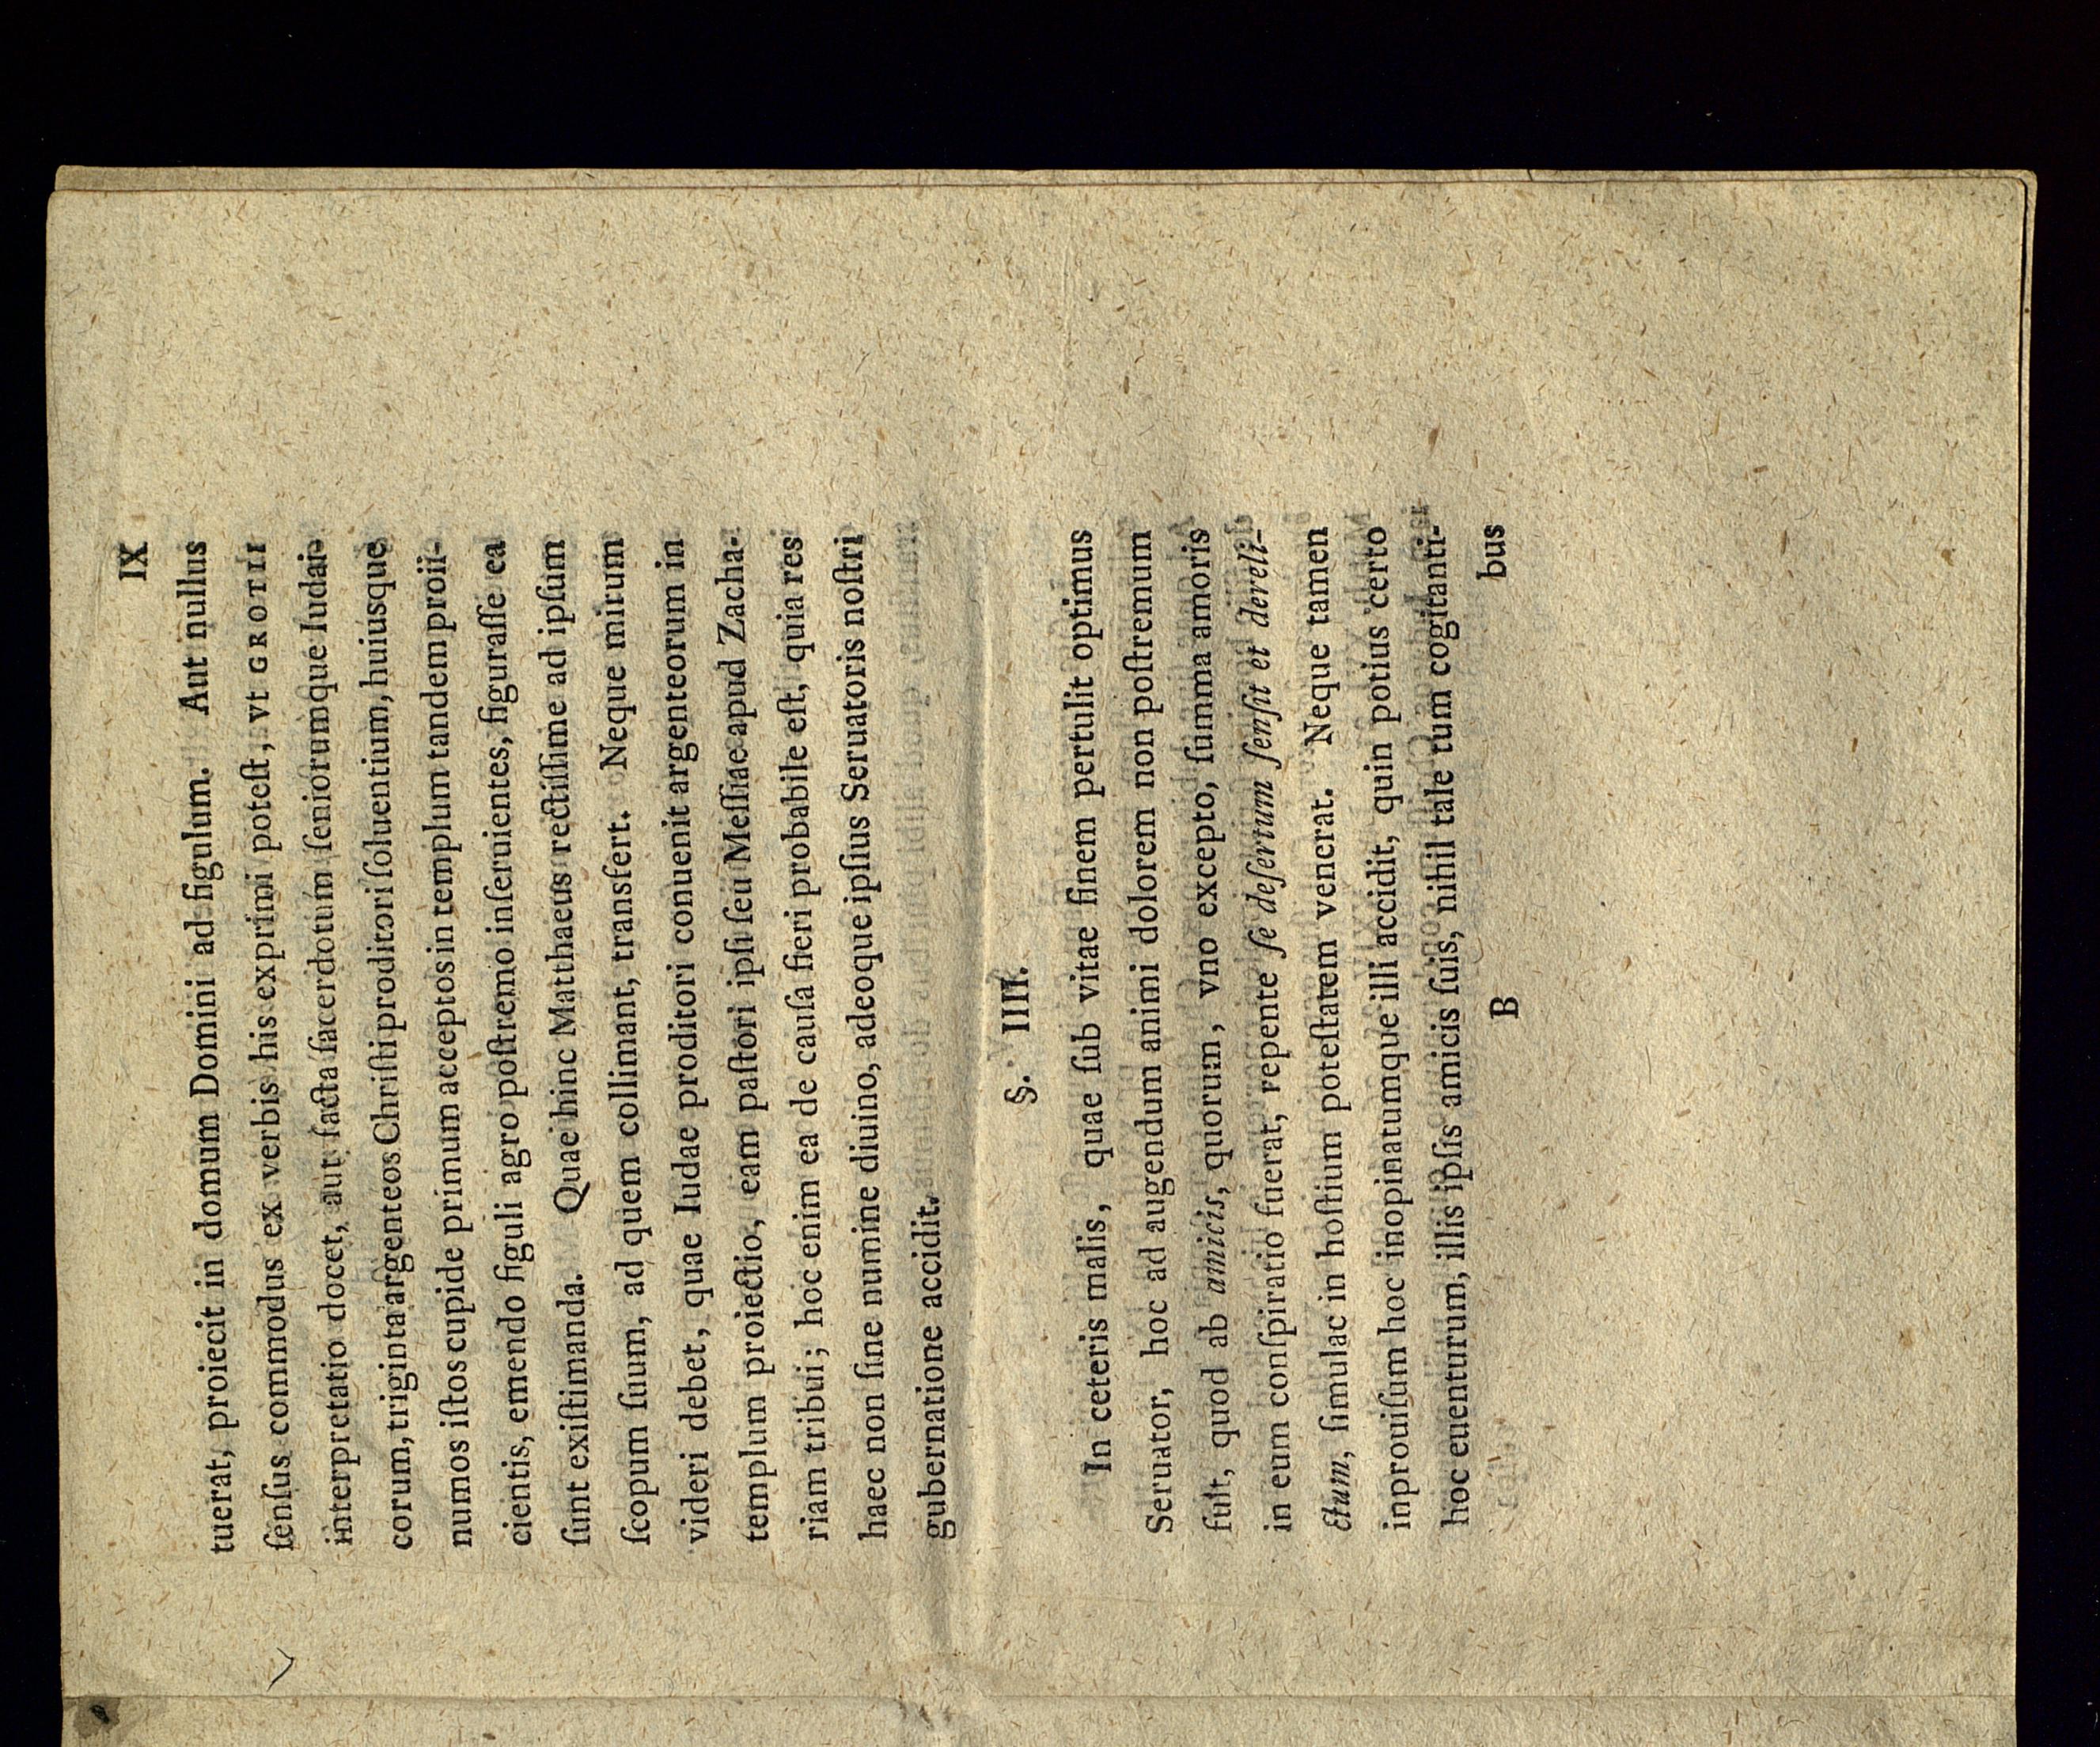 IX
tuerat, proiecit in domum Domini ad figulum. Aut nullus
ſenſus commodus ex verbis his exprimi poteſt, vt GROTII
interpretatio docet, aut facta ſacerdotum ſeniorumque Iudai-
corum, triginta argenteos Chriſti proditori ſoluentium, huiusque
numos iſtos cupide primum acceptos in templum tandem proii-
cientis, emendo figuli agro poſtremo inſeruientes, figuraſſe ea
ſunt exiſtimanda. Quae hinc Matthaeus rectiſſime ad ipſum
ſcopum ſuum, ad quem collimant, transfert. Neque mirum
videri debet, quae Iudae proditori conuenit argenteorum in
templum proiectio, eam paſtori ipſi ſeu Meſſiae apud Zacha-
riam tribui; hoc enim ea de cauſa fieri probabile eſt, quia res
haec non ſine numine diuino, adeoque ipſius Seruatoris noſtri
gubernatione accidit.
§. IIII.
In ceteris malis, quae ſub vitae finem pertulit optimus
Seruator, hoc ad augendum animi dolorem non poſtremum
fuit, quod ab amicis, quorum, vno excepto, ſumma amoris
in eum conſpiratio fuerat, repente ſe deſertum ſenſit et dereli-
ctum, ſimulac in hoſtium poteſtatem venerat. Neque tamen
inprouiſum hoc inopinatumque illi accidit, quin potius certo
hoc euenturum, illis ipſis amicis ſuis, nihil tale tum cogitanti-
B bus